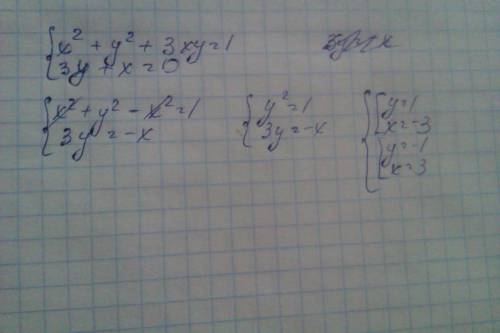 x² + y² + 3xy = 1
3y + x = 0
x² + y² - x² = 1
3y = -x
y² = 1
3y = -x
y = 1
x = -3
y = -1
x = 3